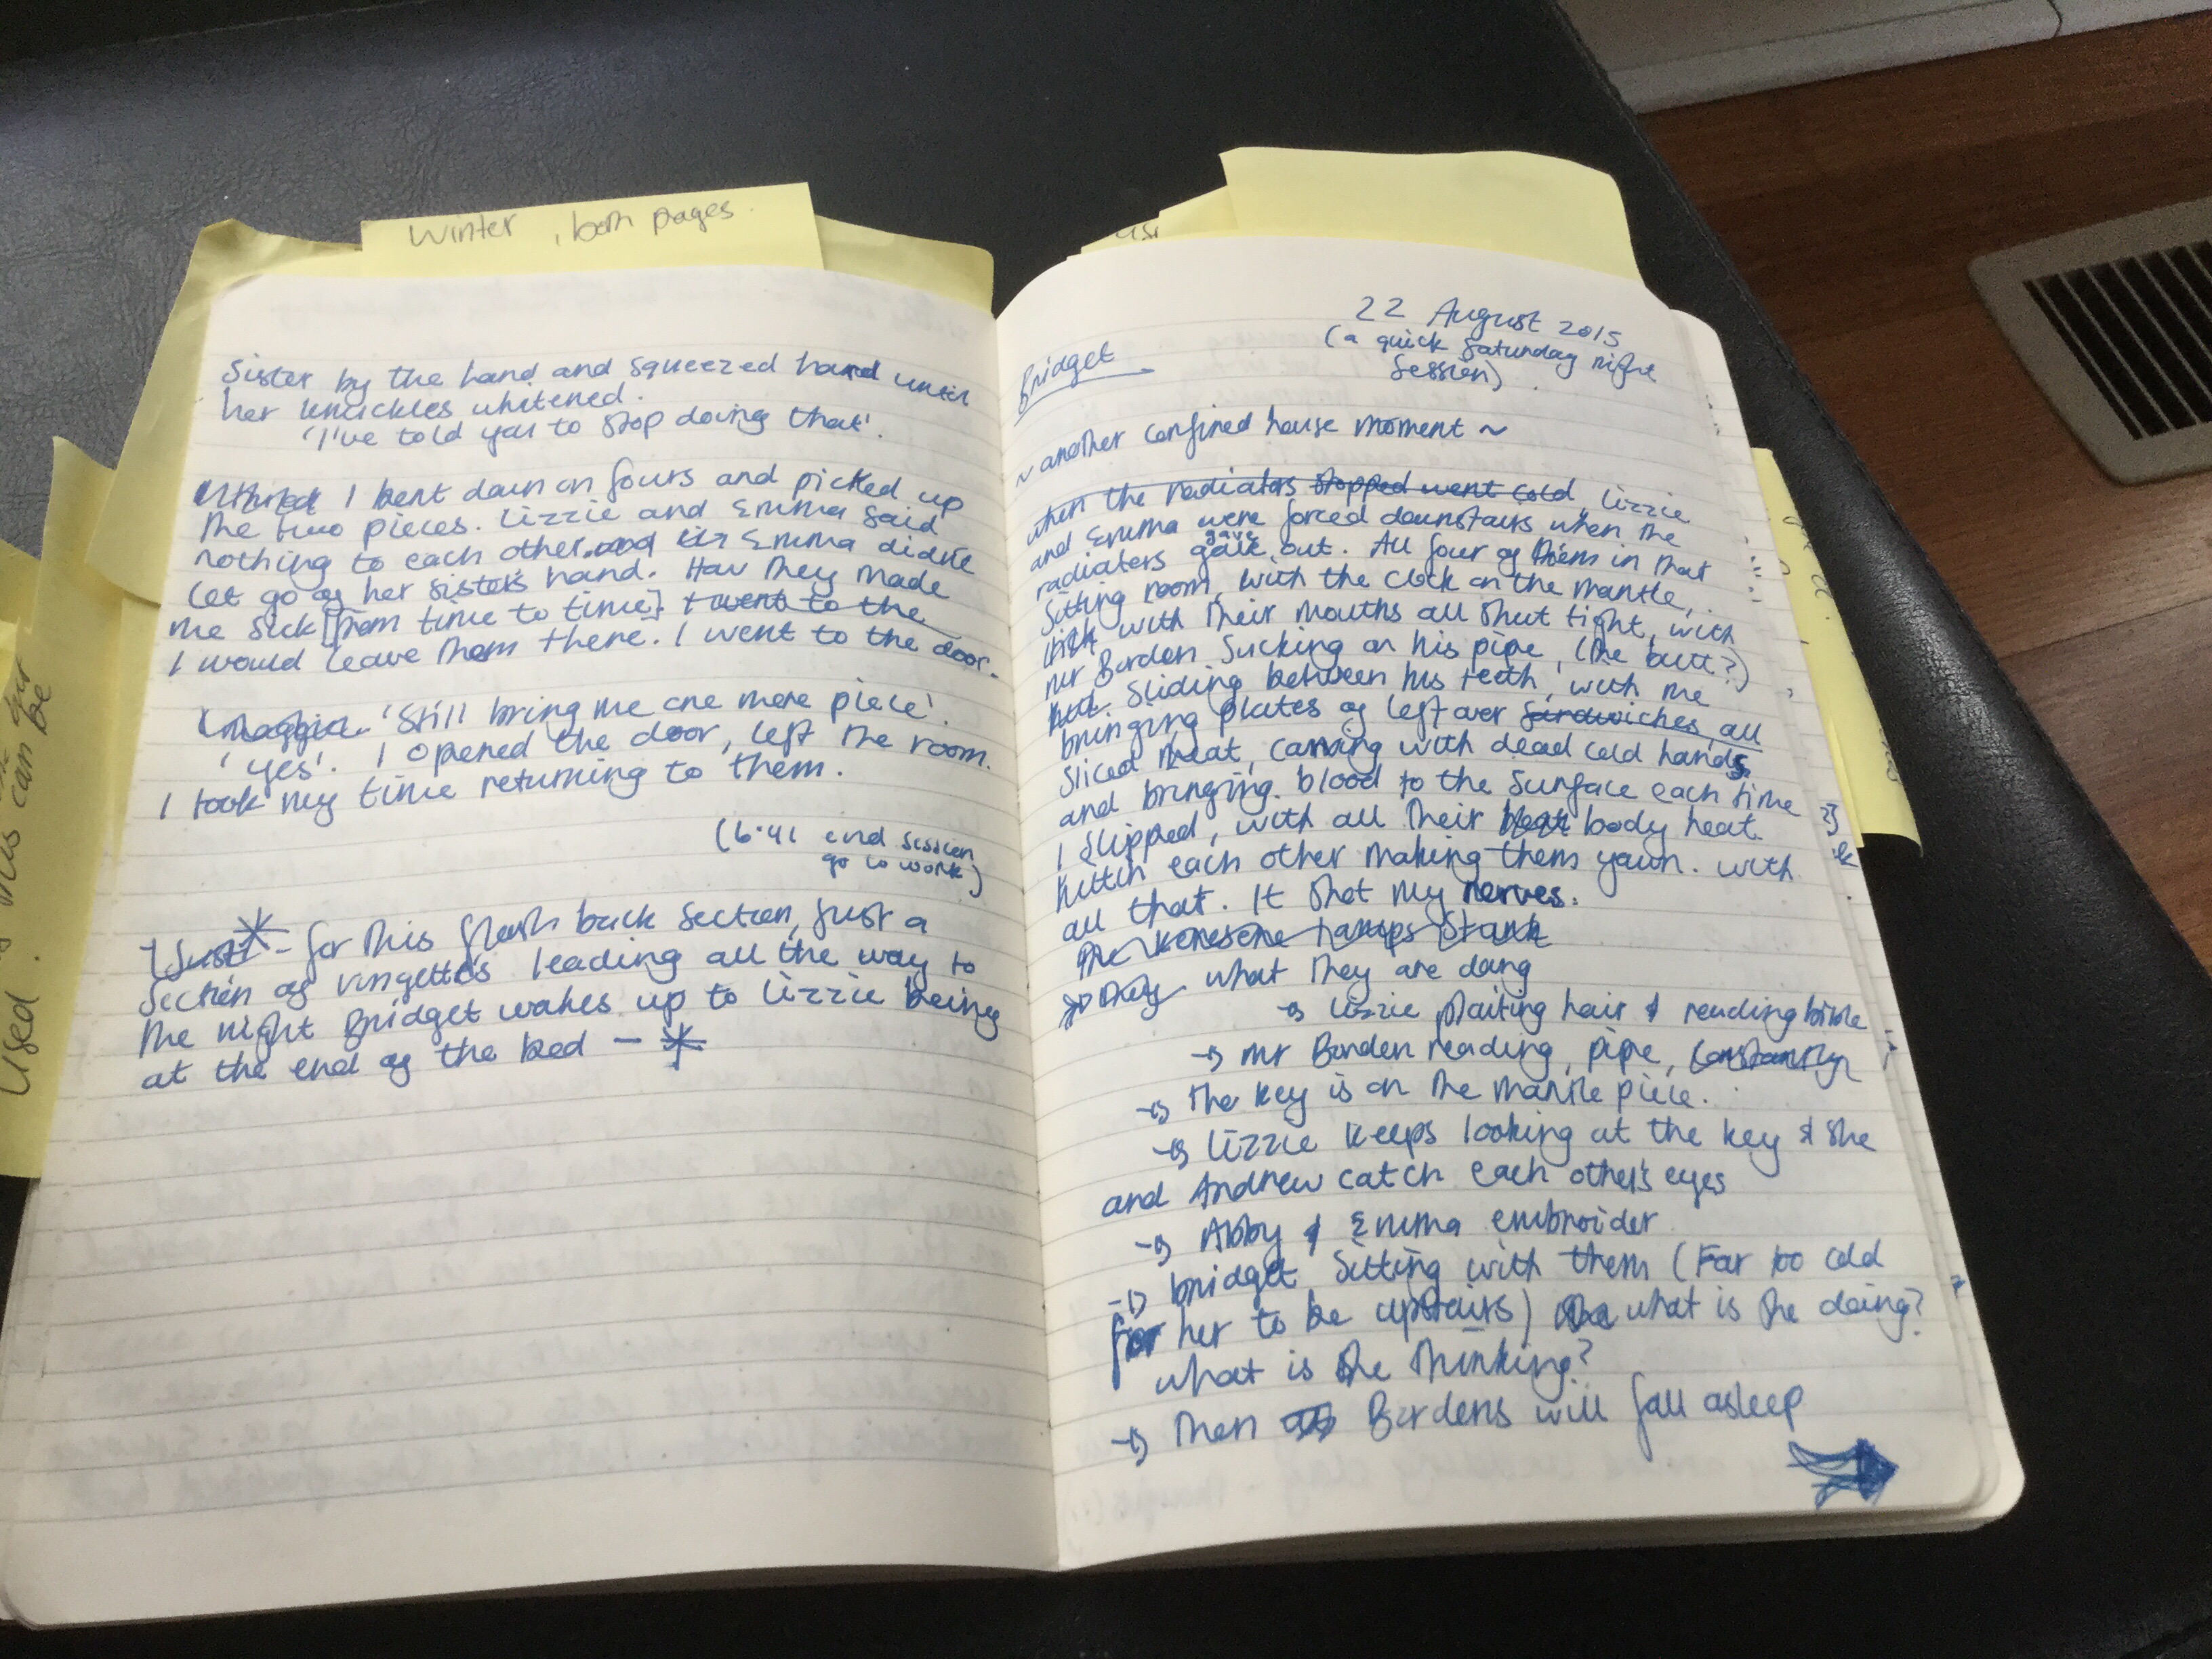 Winter, both pages.
Sister by the hand and squeezed hard until
her knuckles whitened.
'I've told you to stop doing that'.
I bent down on fours and picked up
the two pieces. Lizzie and Emma said
nothing to each other and Emma didn't
let go of her sister's hand. How they made
me sick [from time to time]. I went to the
I would leave them there. I went to the door.
'Still bring me one more piece'.
'Yes'. I opened the door, left the room.
I took my time returning to them.
(6:41 end session
go to work)
- for this flash back section, just a
section of vingettes leading all the way to
the night Bridget wakes up to Lizzie being
at the end of the bed -
22 August 2015
(a quick Saturday night
session)
Bridget
~ another confined house moment ~
when the radiators stopped went cold, Lizzie
and Emma were forced downstairs when the
radiators gave out. All four of them in that
Sitting room, with the clock on the mantle,
with their mouths all shut tight, with
Mr Borden sucking on his pipe, (the butt?)
sliding between his teeth, with me
bringing plates of left over sandwiches, all
sliced meat, carving with dead cold hands
and bringing blood to the surface each time
I slipped, with all their body heat
hittin each other making them yawn. With
all that. It shot my nerves.
The kerosene lamps stank
what they are doing
→ Lizzie plaiting hair & reading bible
→ Mr Borden reading, pipe, constantly
→ The key is on the mantle piece.
→ Lizzie keeps looking at the key & she
and Andrew catch each other's eyes
→ Abby & Emma embroider
→ bridget sitting with them (Far too cold
for her to be upstairs) what is she doing?
what is she thinking?
→ Then Bordens will fall asleep
used.
this can be